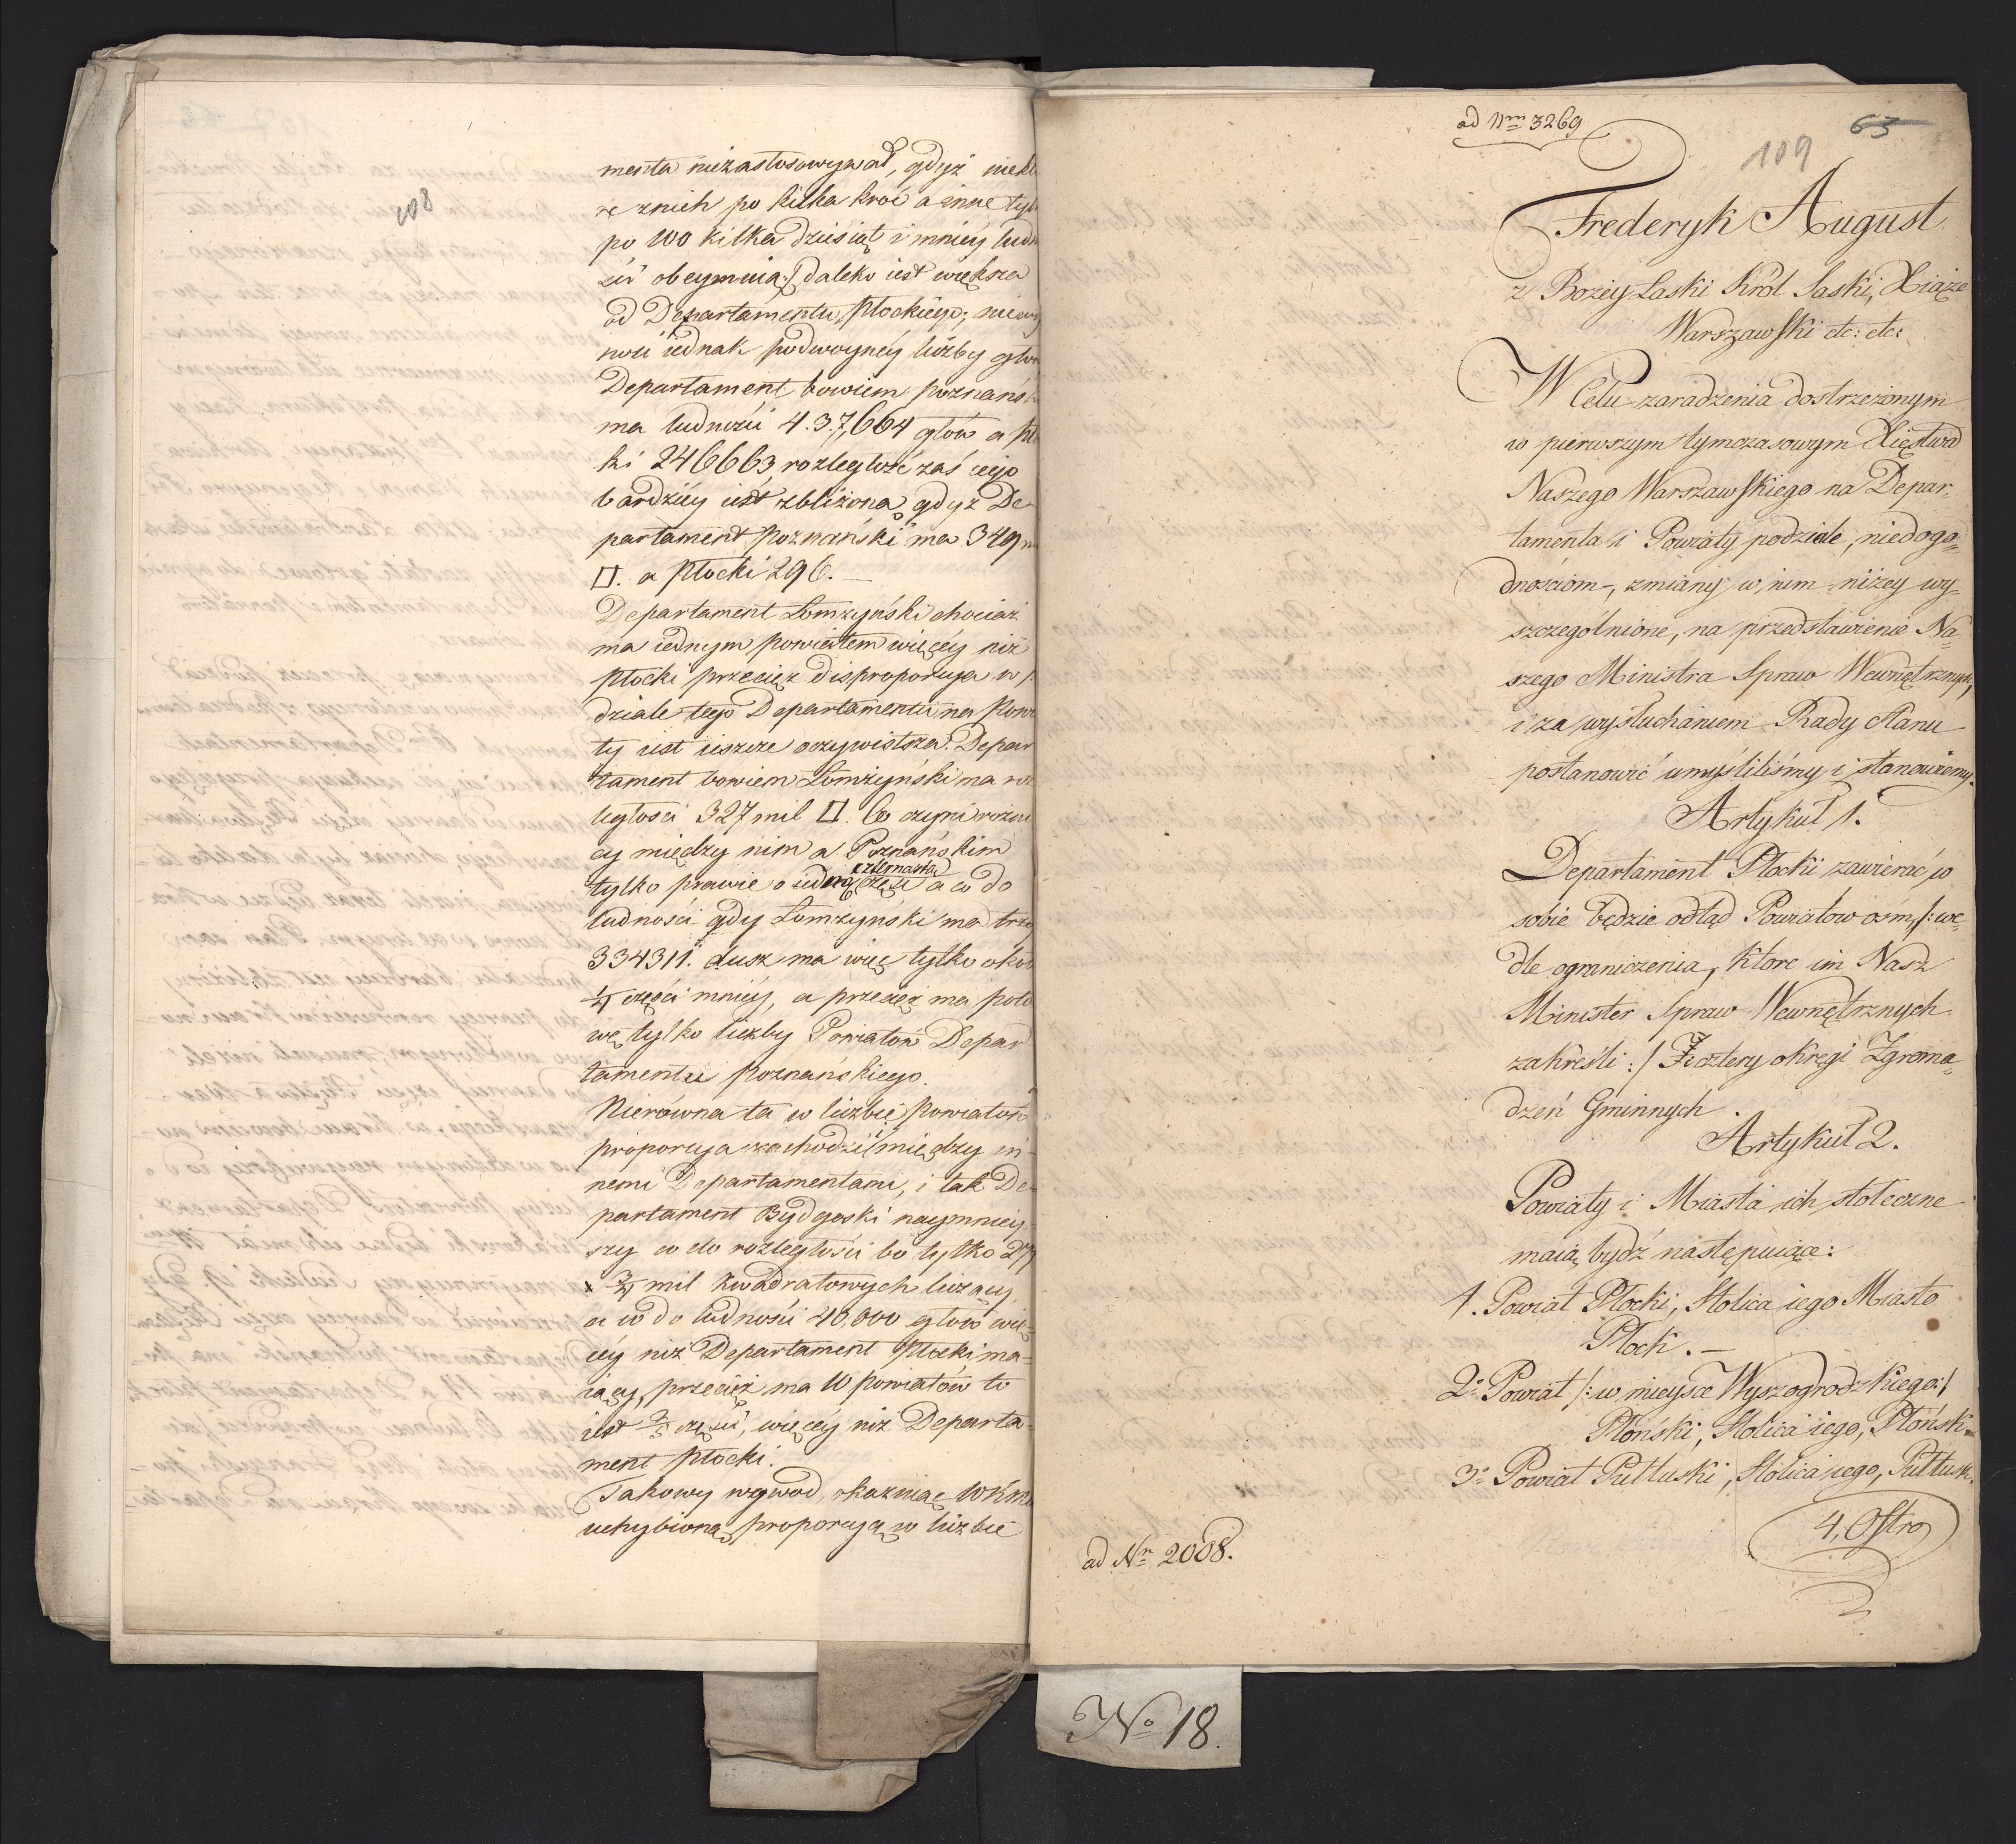 108
menta niezastosowywał, gdyż niekt
re znich po kilka kroć a inne tyl
po 100 kilka dziesiąt i mniéy ludn
ści obeymuią:/ daleko iest większa
od Departamentu Płockiego; niewy
nosi iednak podwoynéy liczby głów
Departament bowiem Poznańs
ma ludności 4.37,664 głów a Pło
ki 246663, rozległość zaś iego
bardziéy iest zbliżona, gdyż De-
partament Poznański ma 349 m
□. a Płocki 296. —
Departament Łomżyński chociaż
ma iednym powiatem więcéy niż
Płocki przecięż disproporcya w p
dziale tego Departamentu na Powi
ty iest ieszcze oczywistsza. Depar
tament bowiem Łomżyński ma roz
ległości 327 mil □. Co czyni różni
cy między nim a Poznańskim
czternastą
tylko prawie o iedną część a co do
ludności gdy Łomżyński ma
334311. dusz ma więc tylko oko
1/4 części mniéy, a przecięż ma poło
wę tylko liczby Powiatów Depar
tamentu Poznańskiego.
Nierówna ta w liczbie Powiatów
proporcya zachodzi i między in-
nemi Departamentami, i tak De-
partament Bydgoski naymniey-
szy co do rozległości bo tylko 277
3/4 mil kwadratowych liczący
a co do ludności 40,000 głów wię-
céy niż Departament Płocki ma-
iący, przecięż ma 10 powiatów to
iest 2/5 części, więcéy niż Departa-
ment Płocki.
Takowy wywod, okazuiąc WKM
uchybioną proporcyą w liczbie
ad Nrm 3269
63
109
Frederyk August
z Bożéy Łaski Król Saski, Xiąże
Warszawski etc: etc:
W Celu zaradzenia dostrzeżonym
w pierwszym tymczasowym Xięstwa
Naszego Warszawskiego na Depar-
tamenta i Powiaty podziale, niedogo-
dnościom, zmiany w nim niżey wy-
szczególnione, na przedstawienie Na-
szego Ministra Spraw Wewnętrznych,
i za wysłuchaniem Rady Stanu
postanowić umyśliliśmy i stanowiemy.
Artykuł 1.
Departament Płocki zawierać w
sobie będzie odtąd Powiatow osm, /: we-
dle ograniczenia, ktore im Nasz
Minister Spraw Wewnętrznych
zakreśli :/ cztery okręgi Zgroma-
dzeń Gminnych.
Artykuł 2.
Powiaty i Miasta ich stołeczne
maią bydź następuiące:
1. Powiat Płocki, Stolica iego Miasto
Płock. —
2. Powiat /: w mieysce Wyszogrodzkiego:/
Płoński, Stolica iego, Płońsk
3. Powiat Pułtuski, Stolica iego, Pułtusk.
4, Ostro
ad Nr 2008.
No 18.